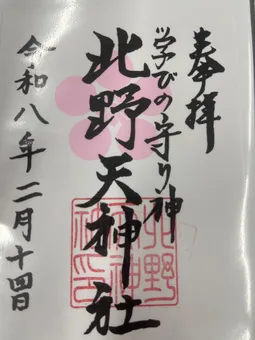 奉拝
学びの守り神
北野天神社
令和八年二月十四日